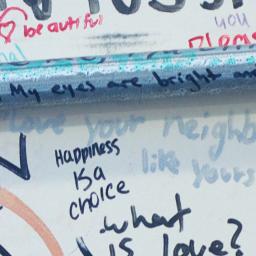 beautiful
you
My eyes are bright
love your neighb
like yours
Happiness
is a
choice
what
is love?